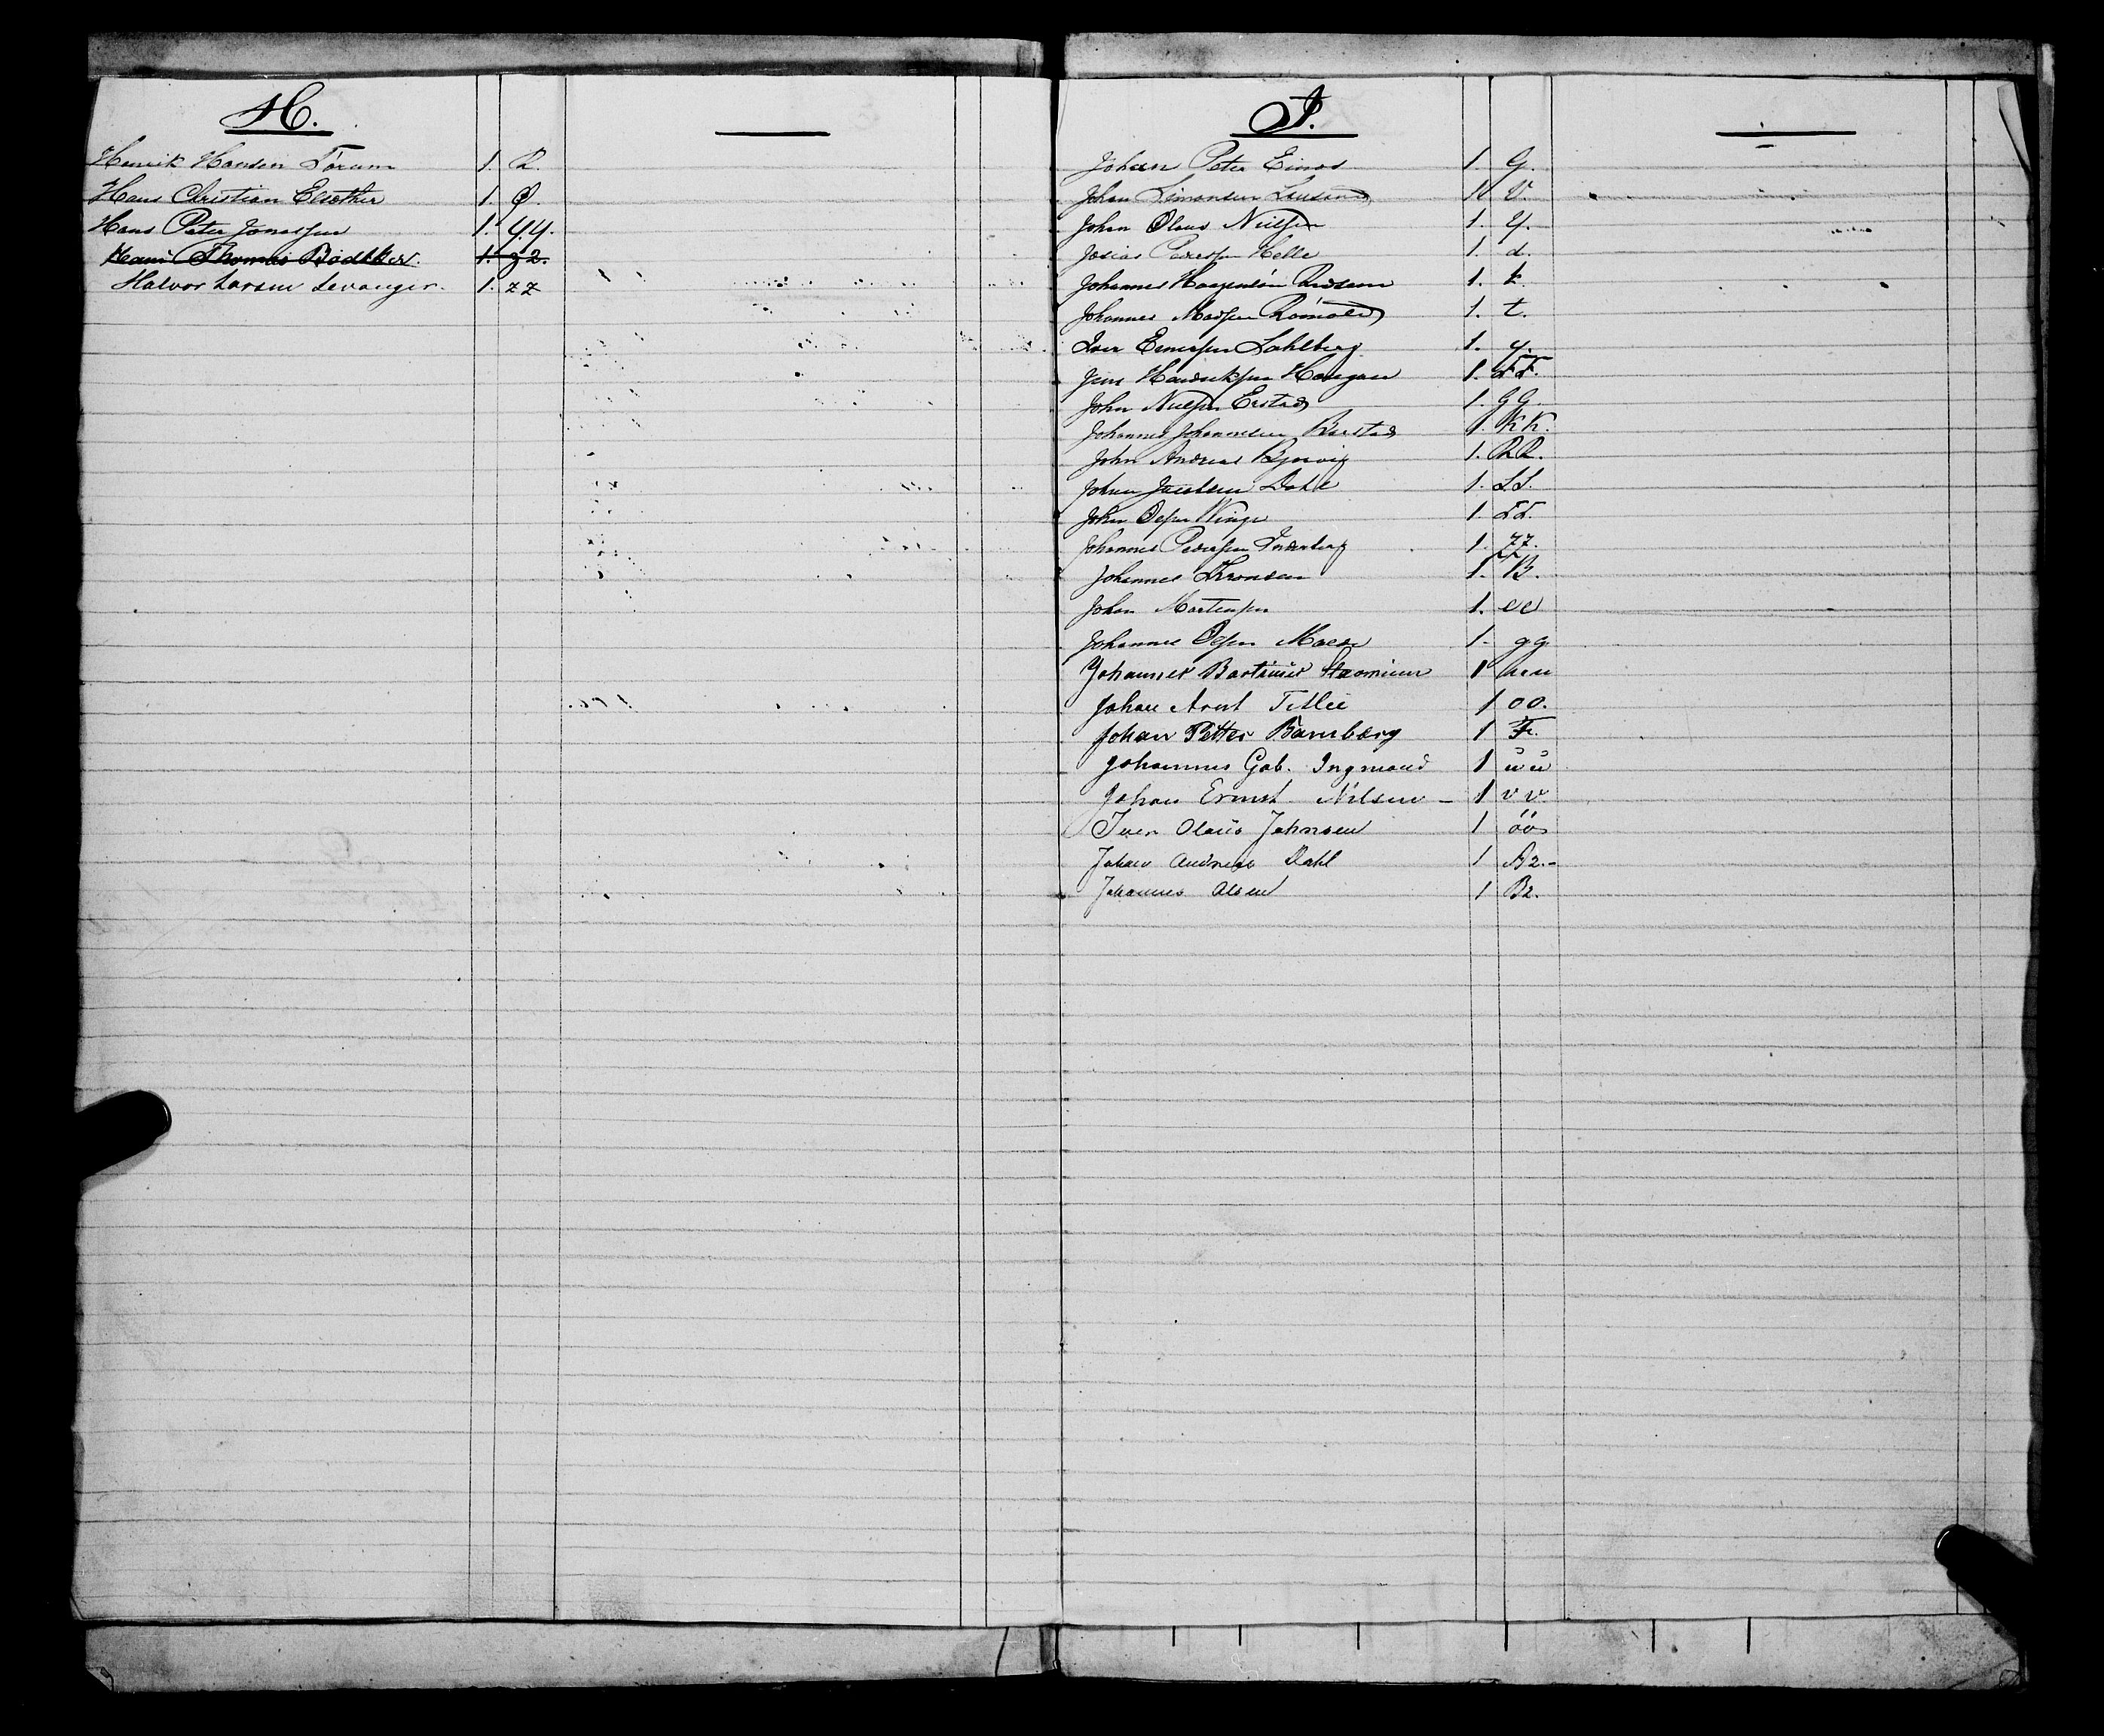 H.
Henrik Hansen Törum 1. R.
Hans Christian Elsæther 1. Q.
Hans Peter Jonassen 1. YY.
Hans Thomas Bödtker 1. z2.
Halvor Larsen Levanger. 1. zz
J.
Johan Peter Einos 1. G.
Johan Simonsen 1. V.
Johan Olaus Nielsen 1. Y.
Josias Pedersen Helle 1. d.
Johannes 1. k.
Johannes Madsen 1. t.
Iver Ernersen Sahlberg 1. y.
Jens Hendriksen Haugan 1.
John Nielsen Erstad 1. GG.
Johannes Johannesen 1. KK.
John Andreas 1. RR.
Johan Jacobsen Dahl 1. SS.
John Olsen Winge 1.
Johannes Pedersen Inderberg 1. ZZ.
Johannes Thronsen 1. B.
Johan Martensen 1. ee
Johannes Olsen Moen 1. gg
Johannes Bartinus 1
Johan Arnt 1 oo.
Johan Petter Bamberg 1
Johannes Gab. Ingmand 1 uu
Johan Ernst Nilsen - 1 vv.
Iver Olaus Johnsen 1 öö
Johan Andreas Dahl 1 A2.-
Johannes Olsen 1 B2.